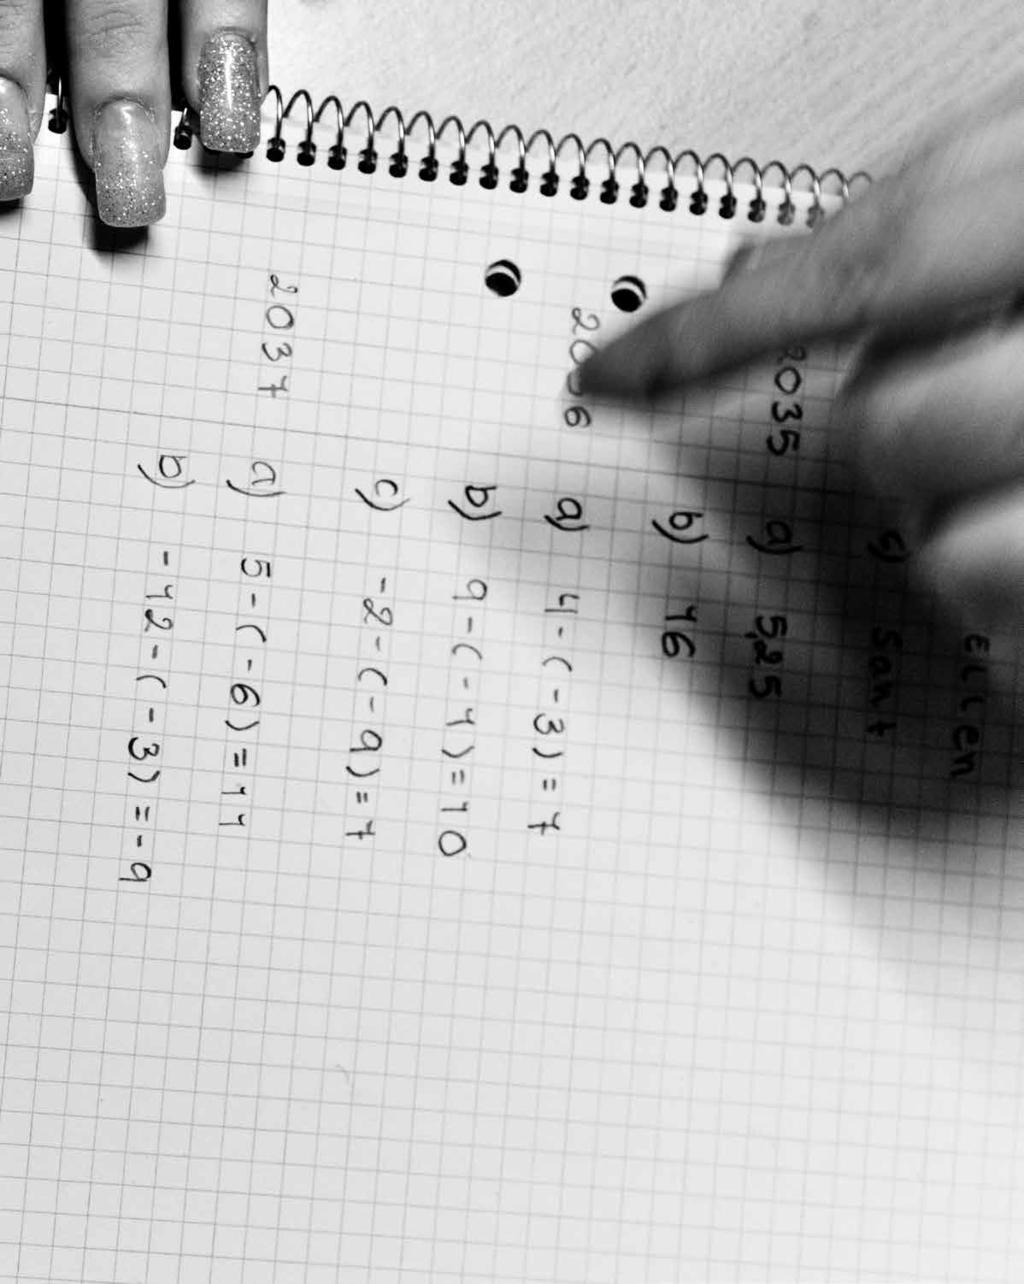 Ellen
c) sant
2035 a) 5,25
b) 16
2036 a) 4-(-3)=7
b) 9-(-1)=10
c) -2-(-9)=7
2037 a) 5-(-6)=11
b) -12-(-3)=-9